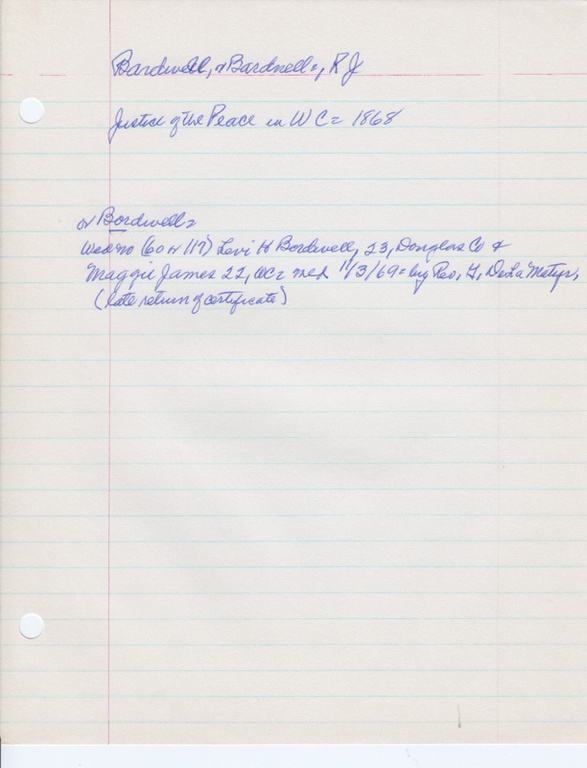 Bardwell, or Bardnell=, R J
Justice of the Peace in W C = 1868
or Bordwell=
Wed no (60 or 117) Levi H Bordwell, 23, Douglas Co &
Maggie James 22, WC= med 11/3/69= by Rev, G, De La Matyr,
(late return of certificate)